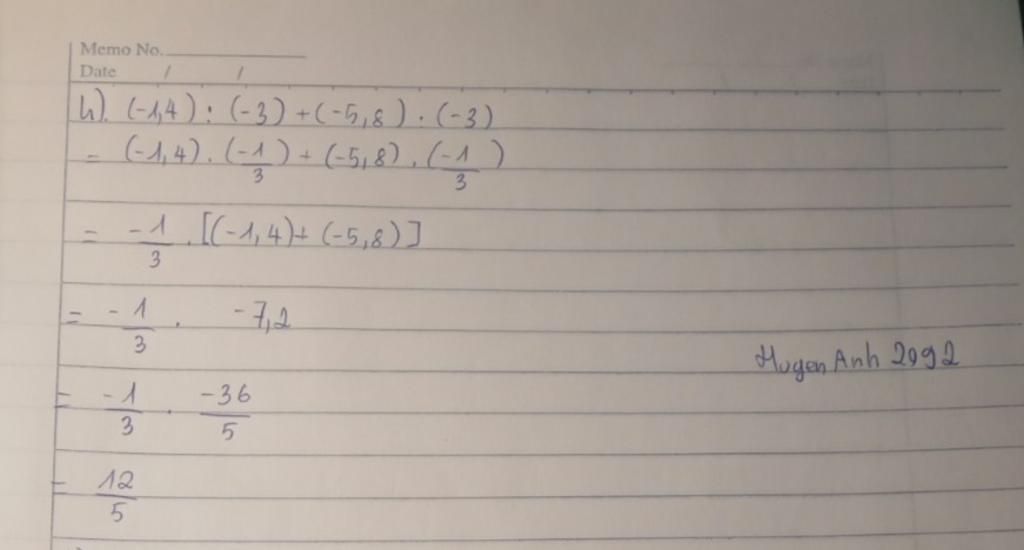 Memo No.
Date / /
h). (-1,4) : (-3) + (-5,8) . (-3)
= (-1,4) . (-1/3) + (-5,8) . (-1/3)
= -1/3 . [(-1,4) + (-5,8)]
= -1/3 . -7,2
HugenAnh 2992
= -1/3 . -36/5
= 12/5